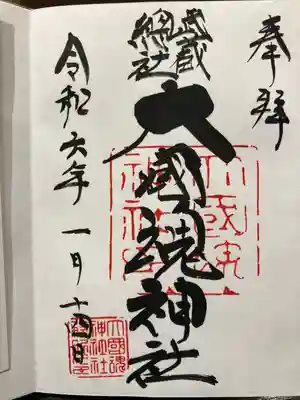 奉拝
武蔵
總社
大國魂神社
令和六年 一月 十四日
大國魂神社